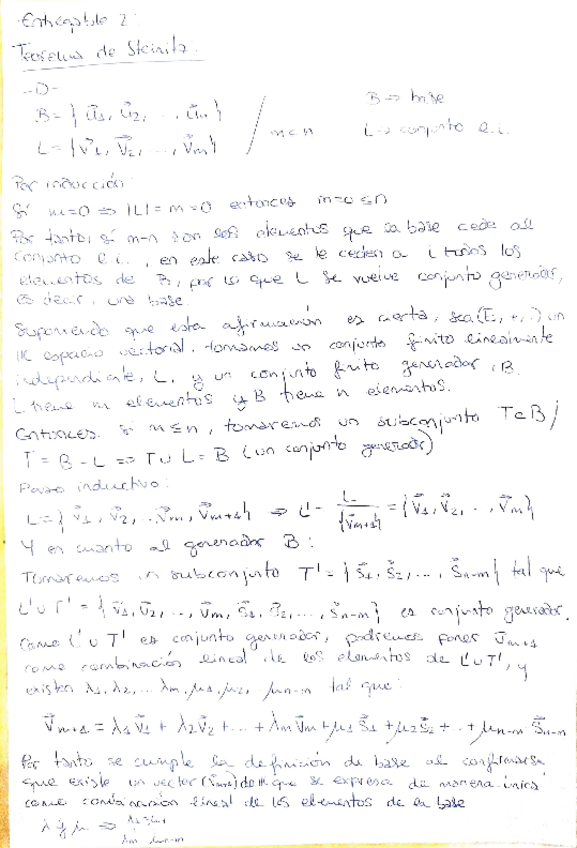 Entregable 2:
Teorema de Steinitz.
-D-
B = { u⃗1, u⃗2, ..., u⃗n } B => base
L = { v⃗1, v⃗2, ..., v⃗m } / m<n L -> conjunto l.i.
Por inducción:
Si m=0 => |L| = m = 0 entonces m=0 ≤ n
Por tanto, si m-n son los elementos que la base cede al
conjunto l.i., en este caso se le ceden a L todos los
elementos de B, por lo que L se vuelve conjunto generador,
es decir, una base.
Suponiendo que esta afirmación es cierta, sea (E, +, ·) un
K espacio vectorial. tomamos un conjunto finito linealmente
independiente, L, y un conjunto finito generador, B.
L tiene m elementos y B tiene n elementos.
Entonces. si m ≤ n, tomaremos un subconjunto T⊂B /
T = B - L => T ∪ L = B (un conjunto generador)
Paso inductivo:
L = { v⃗1, v⃗2, ..., v⃗m, v⃗m+1 } => L' = L / {v⃗m+1} = { v⃗1, v⃗2, ..., v⃗m }
Y en cuanto al generador B:
Tomaremos un subconjunto T' = { s⃗1, s⃗2, ..., s⃗n-m } tal que
L' ∪ T' = { v⃗1, v⃗2, ..., v⃗m, s⃗1, s⃗2, ..., s⃗n-m } es conjunto generador.
Como L' ∪ T' es conjunto generador, podremos poner v⃗m+1
como combinación lineal de los elementos de L' ∪ T', y
existen λ1, λ2, ... λm, μ1, μ2, μn-m tal que:
v⃗m+1 = λ1 v⃗1 + λ2 v⃗2 + ... + λm v⃗m + μ1 s⃗1 + μ2 s⃗2 + ... + μn-m s⃗n-m
Por tanto se cumple la definición de base al confirmarse
que existe un vector (v⃗m+1) que se expresa de manera única
como combinación lineal de los elementos de la base
λ y μ => λ1 μ1
λm μn-m